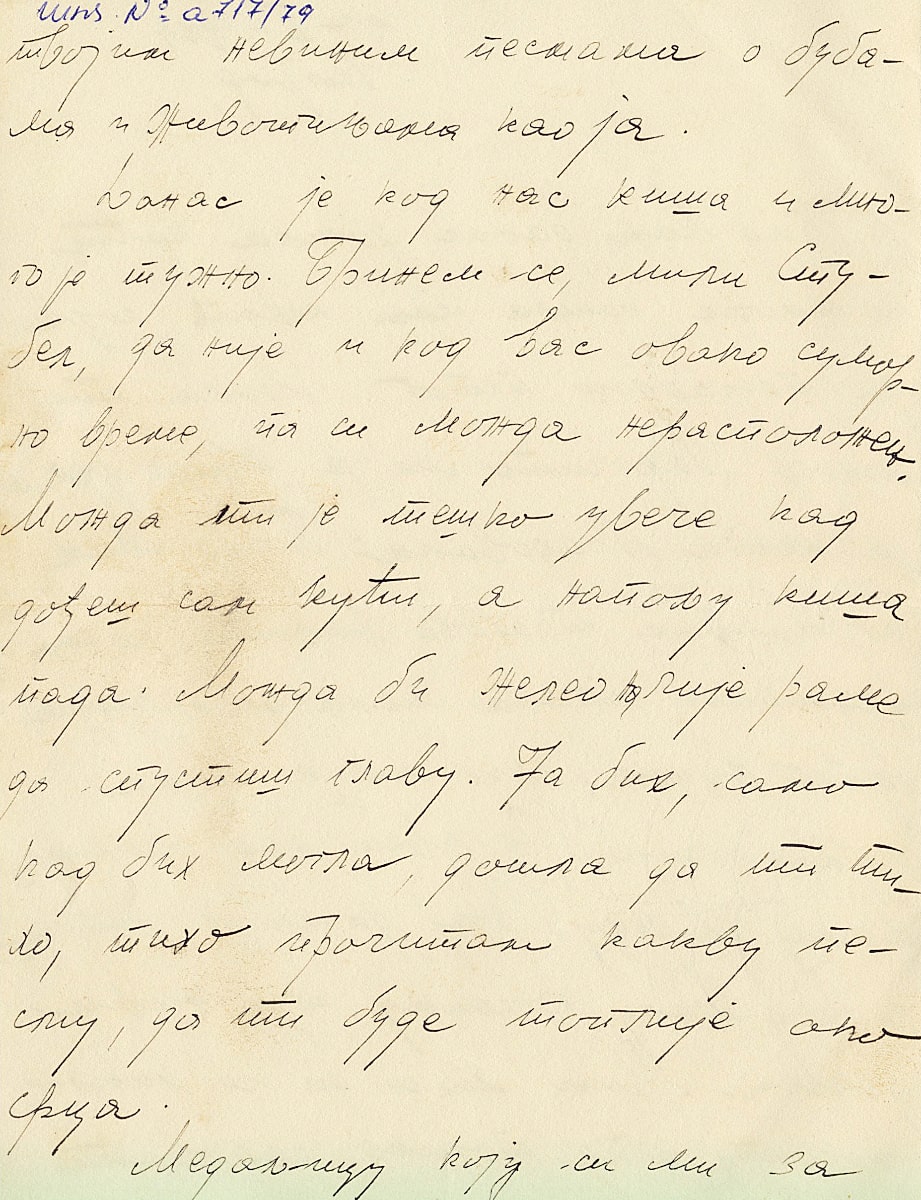 инв. № а 717/79
твојим невиним песмама о буба-
ма и животињама као ја.
Данас је код нас киша и мно-
го је тужно. Бринем се, мили Сту-
бел, да није и код вас овако сумор-
но време, па си можда нерасположен.
Можда ти је тешко увече кад
дођеш сам кући, а напољу киша
пада. Можда би желео на чије раме
да спустиш главу. Ја бих, само
кад бих могла, дошла да ти ти-
хо, тихо прочитам какву пе-
сму, да ти буде топлије око
срца.
Медаљицу коју си ми за